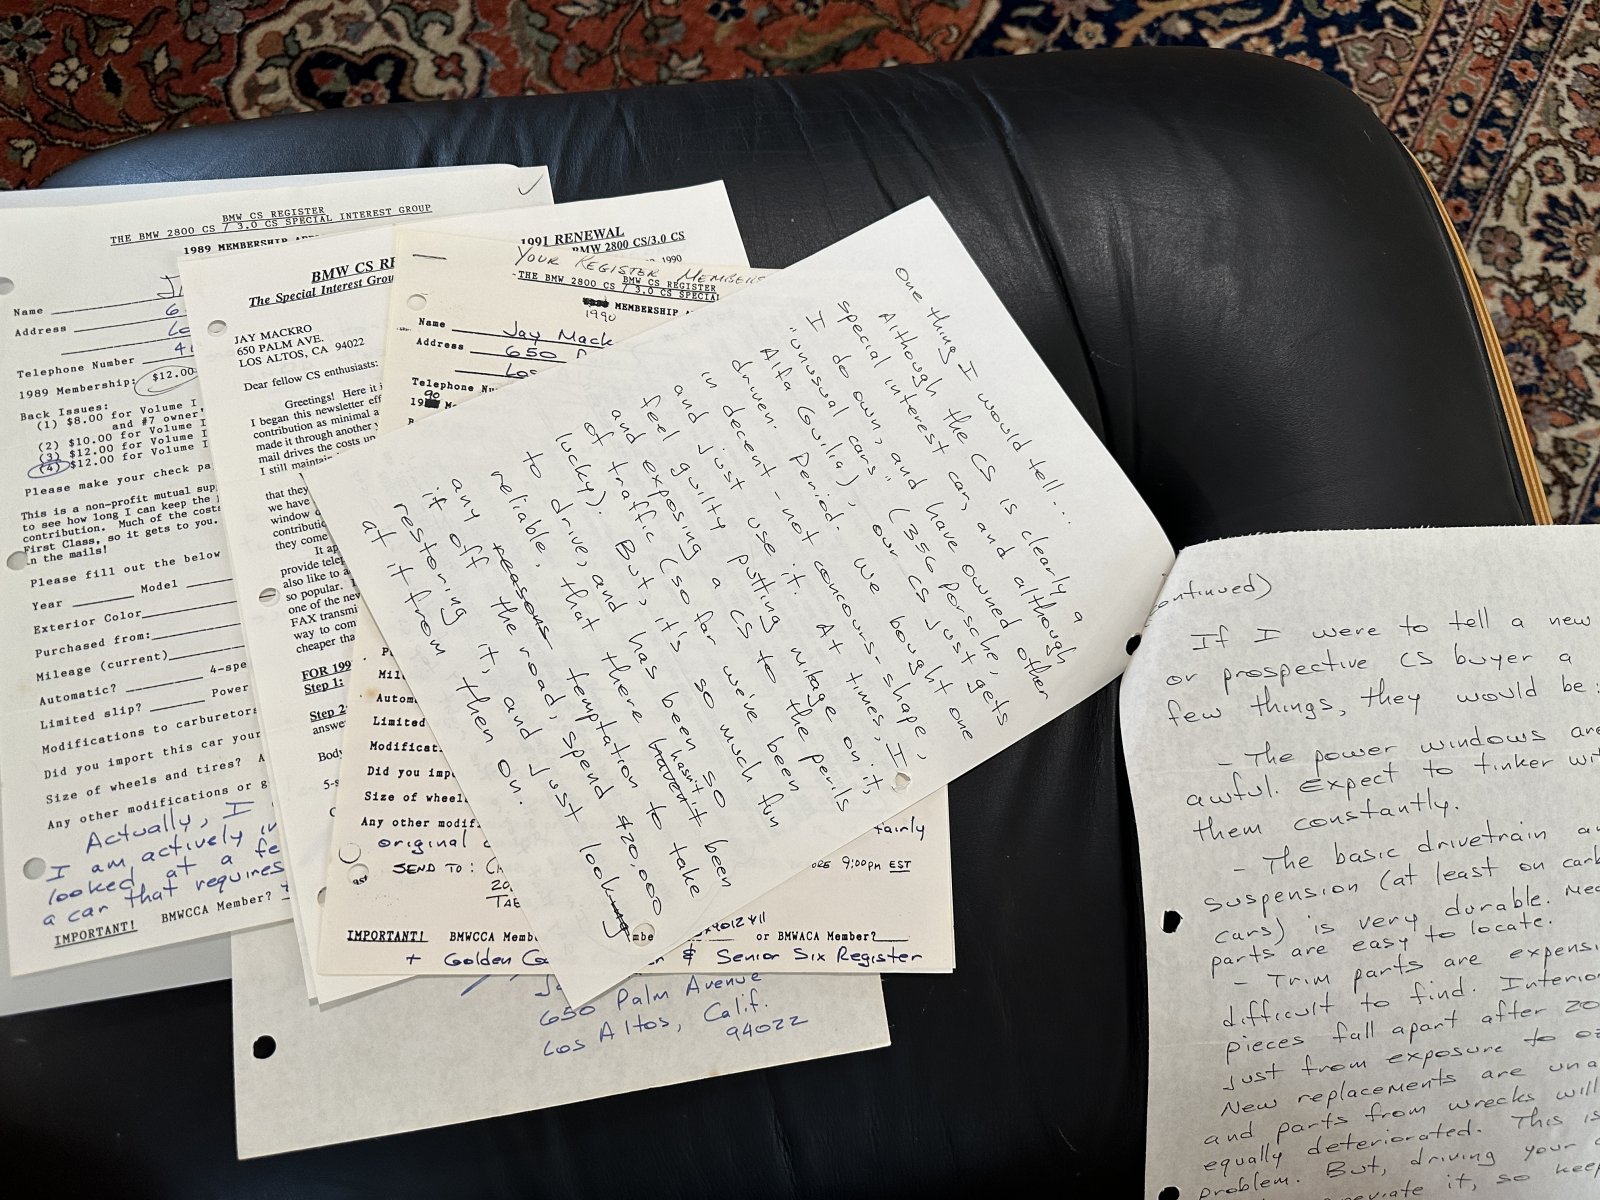 BMW CS REGISTER
THE BMW 2800 CS / 3.0 CS SPECIAL INTEREST GROUP
1989 MEMBERSHIP
Name
Address
Telephone Number
1989 Membership: $12.00
Back Issues:
(1) $8.00 for Volume I
and #7 owner'
(2) $10.00 for Volume I
(3) $12.00 for Volume I
(4) $12.00 for Volume I
Please make your check pa
This is a non-profit mutual sup
to see how long I can keep the
contribution. Much of the costs
First Class, so it gets to you.
in the mails!
Please fill out the below
Year Model
Exterior Color
Purchased from:
Mileage (current)
Automatic? 4-spe
Limited slip? Power
Modifications to carburetors
Did you import this car your
Size of wheels and tires? A
Any other modifications or
Actually, I
I am actively
looked at a fe
a car that requires
IMPORTANT! BMWCCA Member?
1991 RENEWAL
BMW CS RE
BMW 2800 CS/3.0 CS
The Special Interest Grou
1990
JAY MACKRO
650 PALM AVE.
LOS ALTOS, CA 94022
Dear fellow CS enthusiasts:
Greetings! Here it i
I began this newsletter eff
contribution as minimal a
made it through another y
mail drives the costs up
I still maintain
that they
we have
window
contributi
they come
It ap
provide telep
also like to a
so popular.
one of the nev
FAX transmi
way to com
cheaper tha
FOR 199
Step 1:
Step 2
answe
Body
5-s
YOUR REGISTER MEMBERS
BMW CS REGISTER
THE BMW 2800 CS / 3.0 CS SPECIAL
MEMBERSHIP
1990
Name Jay Mack
Address 650
Telephone Nu
90
19
Mil
Autom
Limited
Modificat
Did you imp
Size of wheel
Any other modif fairly
original
SEND TO:
9:00pm EST
IMPORTANT! BMWCCA Memb or BMWACA Member?
+ Golden & Senior Six Register
650 Palm Avenue
Los Altos, Calif.
94022
One thing I would tell...
Although the CS is clearly a
special interest car, and although
I do own, and have owned other
"unusual cars" (356 Porsche,
Alfa Giulia), our CS just gets
driven. Period. We bought one
in decent - not concours - shape,
and just use it. At times, I
feel guilty putting mileage on it,
and exposing a CS to the perils
of traffic (so far we've been
lucky). But, it's so much fun
to drive, and has been so
reliable, that there hasn't been
any reasons temptation to take
it off the road, spend $20,000
restoring it, and just look
at it from then on.
ontinued)
If I were to tell a new
or prospective CS buyer a
few things, they would be:
- The power windows are
awful. Expect to tinker wit
them constantly.
- The basic drivetrain an
suspension (at least on carb
cars) is very durable. Mec
parts are easy to locate.
- Trim parts are expensi
difficult to find. Interior
pieces fall apart after 20
just from exposure to oz
New replacements are una
and parts from wrecks will
equally deteriorated. This is
problem. But, driving your
it, so keep